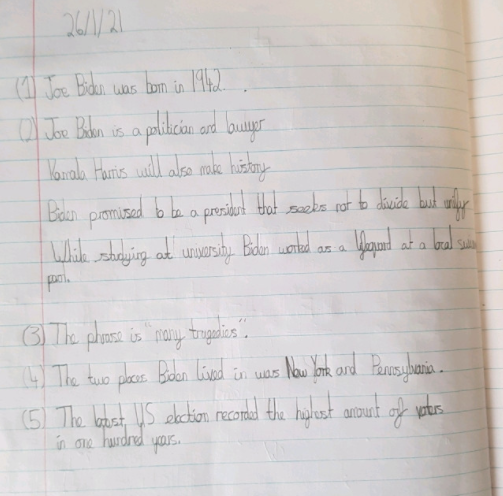 26/1/21
(1) Joe Biden was born in 1942.
(2) Joe Biden is a politician and lawyer
Kamala Harris will also make history
Biden promised to be a president that seeks not to divide but unify
While studying at university Biden worked as a lifeguard at a local swimming
pool.
(3) The phrase is "many tragedies".
(4) The two places Biden lived in was New York and Pennsylvania.
(5) The latest US election recorded the highest amount of voters
in one hundred years.